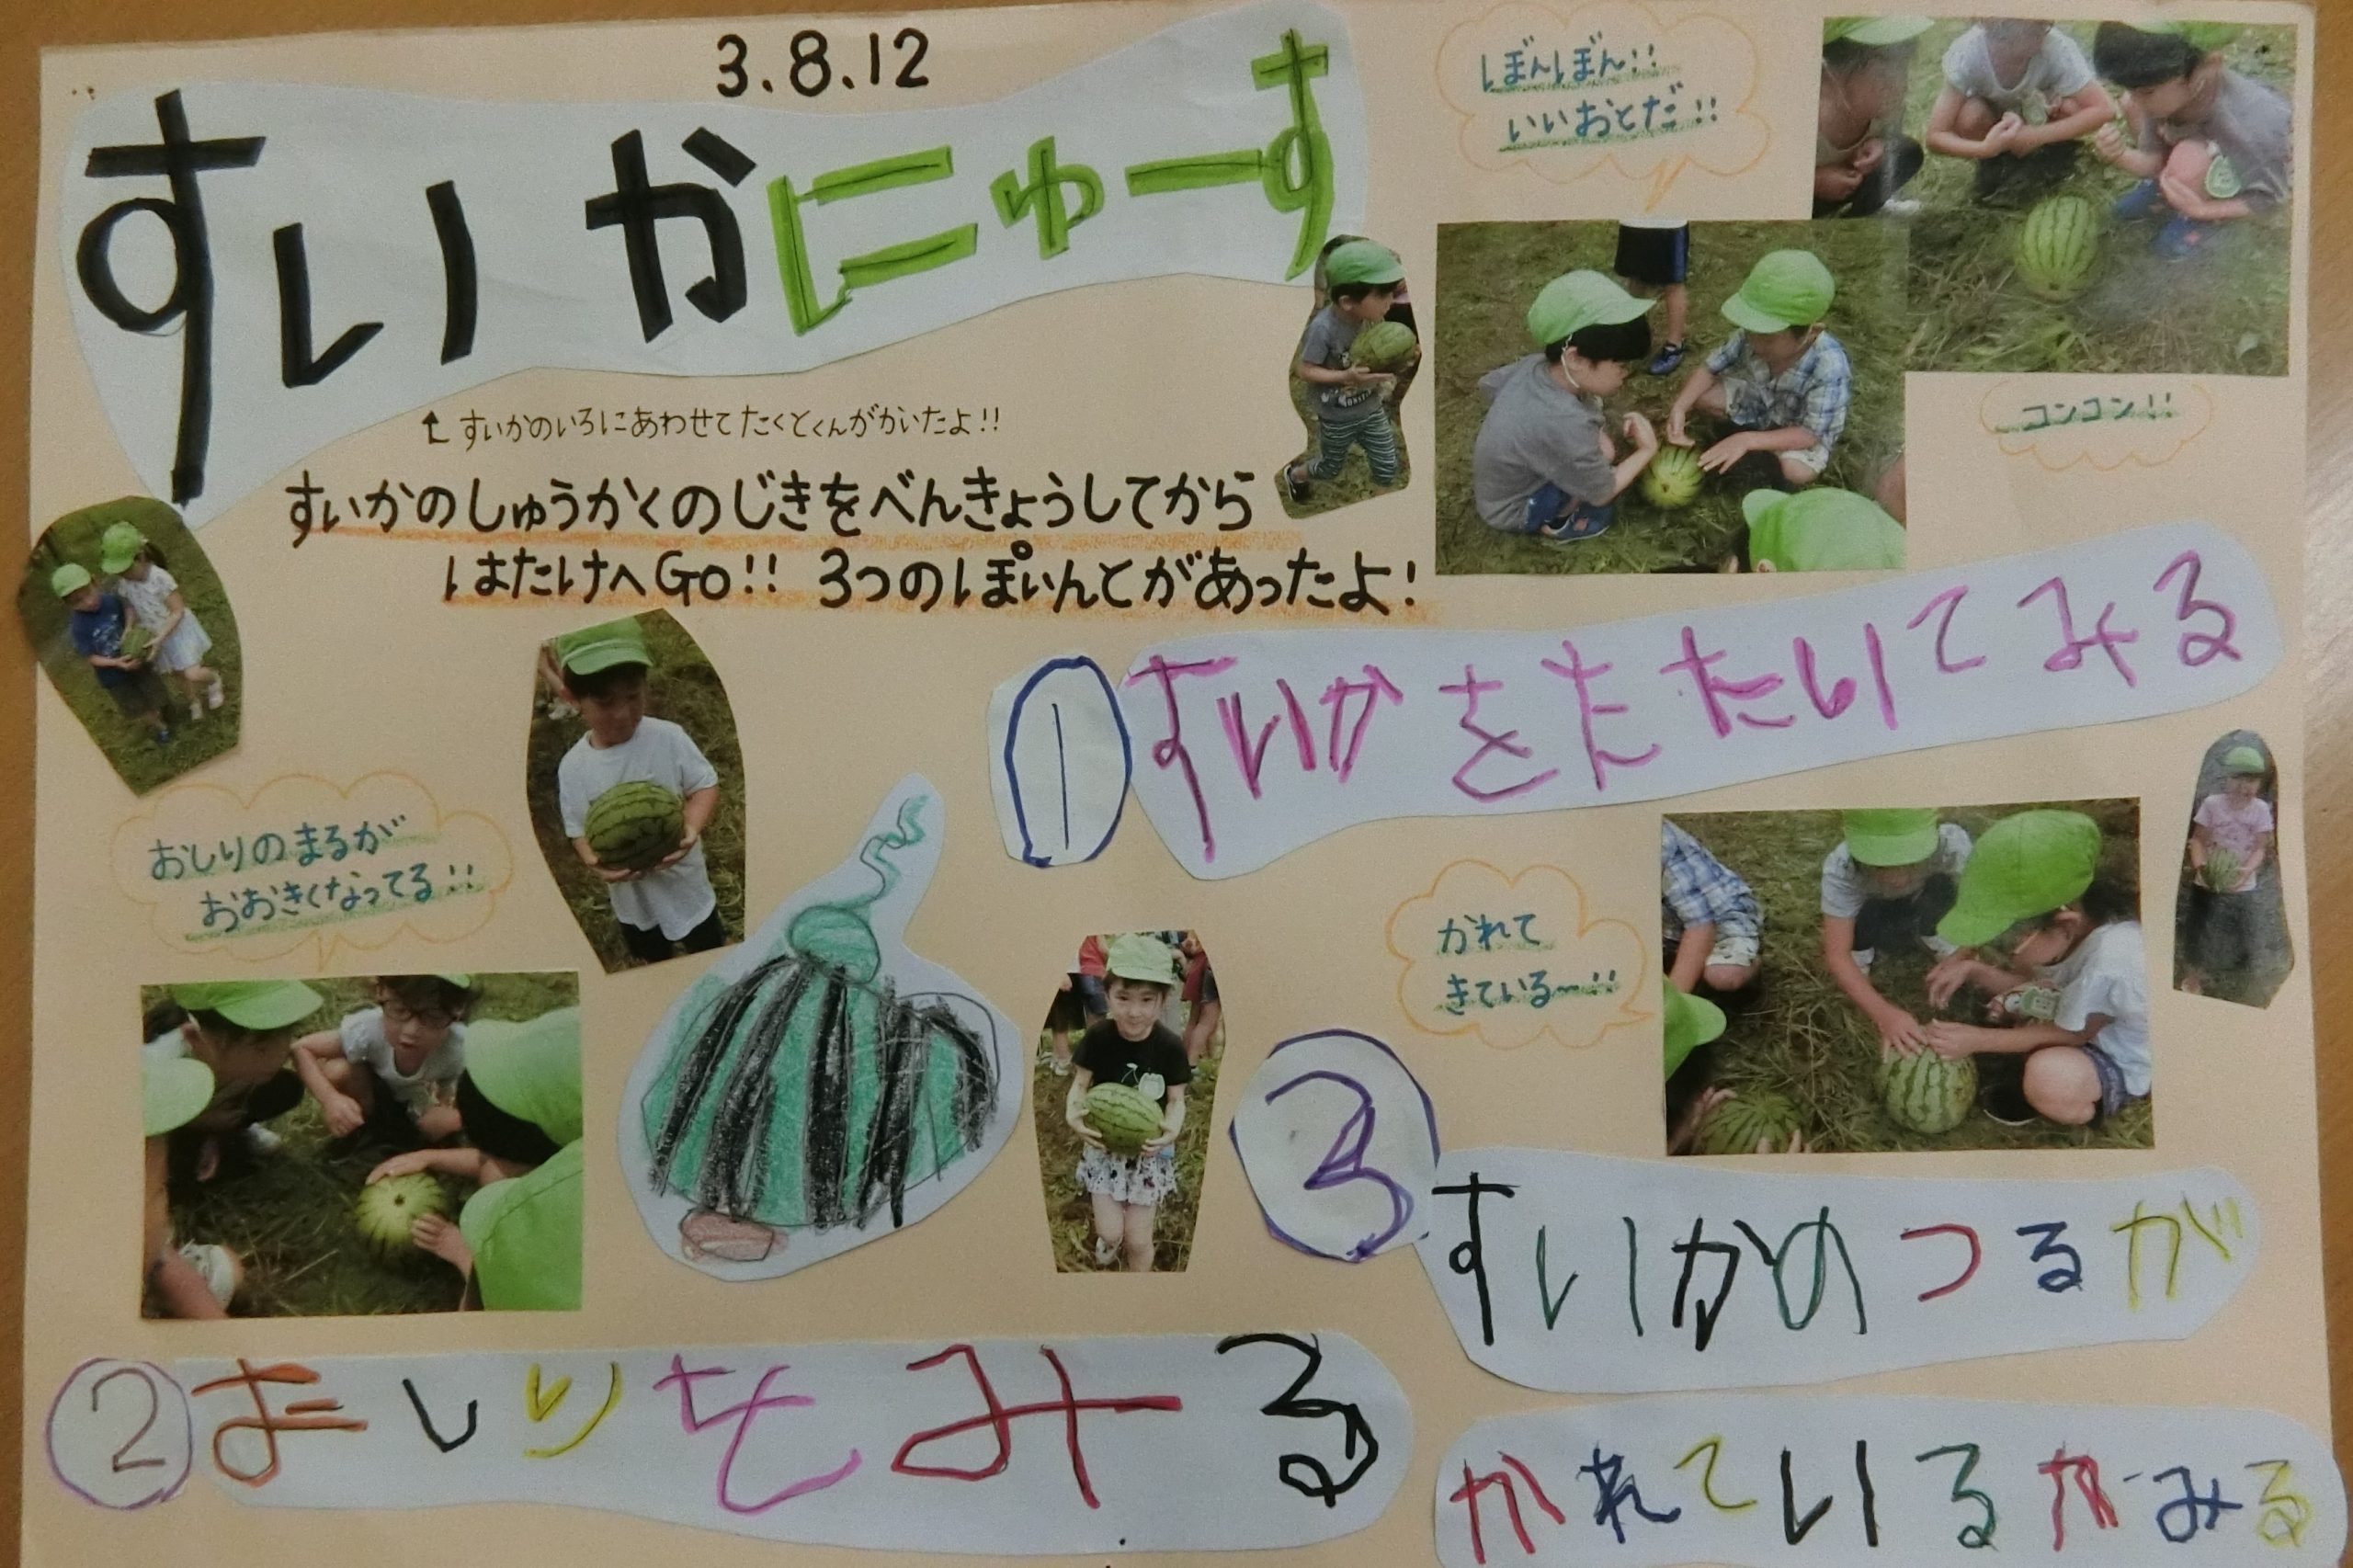 3.8.12
すいかにゅーす
↑すいかのいろにあわせてたくとくんがかいたよ!!
すいかのしゅうかくのじきをべんきょうしてから
はたけへGo!! 3つのぽいんとがあったよ!
ぼんぼん!!
いいおとだ!!
コンコン!!
①すいかをたたいてみる
おしりのまるが
おおきくなってる!!
②おしりをみる
かれて
きている〜!!
③すいかのつるが
かれているかみる